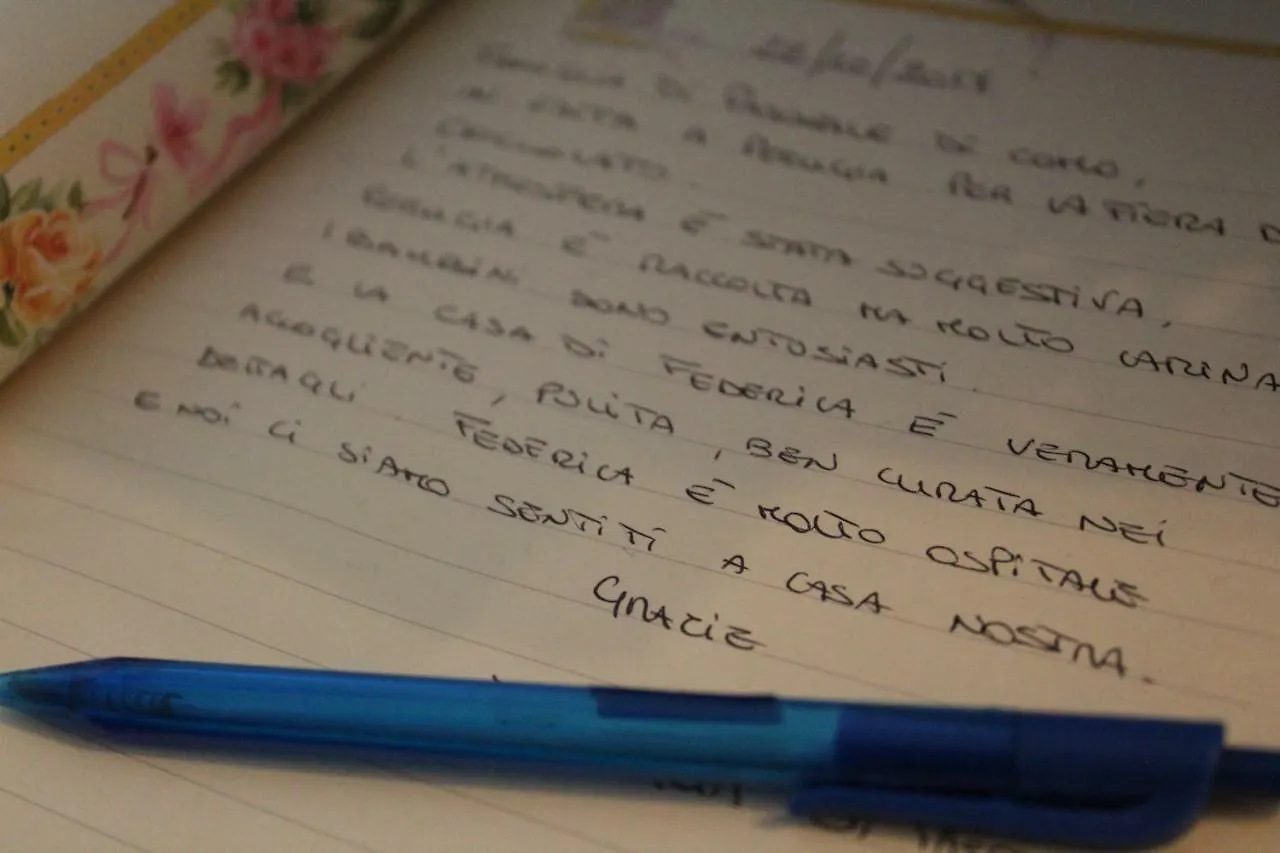 22/10/2017
FAMIGLIA DI PASQUALE DI COMO,
IN VISITA A PERUGIA PER LA FIERA D
CIOCCOLATO.
L'ATMOSFERA È STATA SUGGESTIVA,
PERUGIA È RACCOLTA MA MOLTO CARINA
I BAMBINI SONO ENTUSIASTI.
E LA CASA DI FEDERICA È VERAMENTE
ACCOGLIENTE, PULITA, BEN CURATA NEI
DETTAGLI. FEDERICA È MOLTO OSPITALE
E NOI CI SIAMO SENTITI A CASA NOSTRA.
GRAZIE